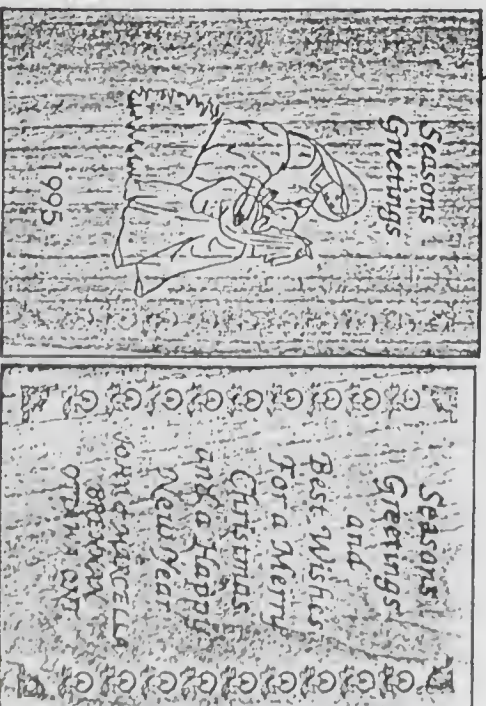 Seasons
Greetings
1995
Seasons
Greetings
and
Best Wishes
For a Merry
Christmas
and a Happy
New Year
JOHN & MARCELLA
BRENNAN
OTTAWA ONT